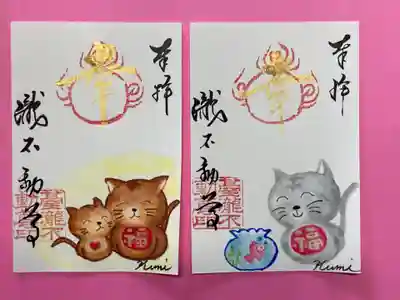 奉拝
瀧不動尊
福
Kumi
奉拝
瀧不動尊
福
Kumi